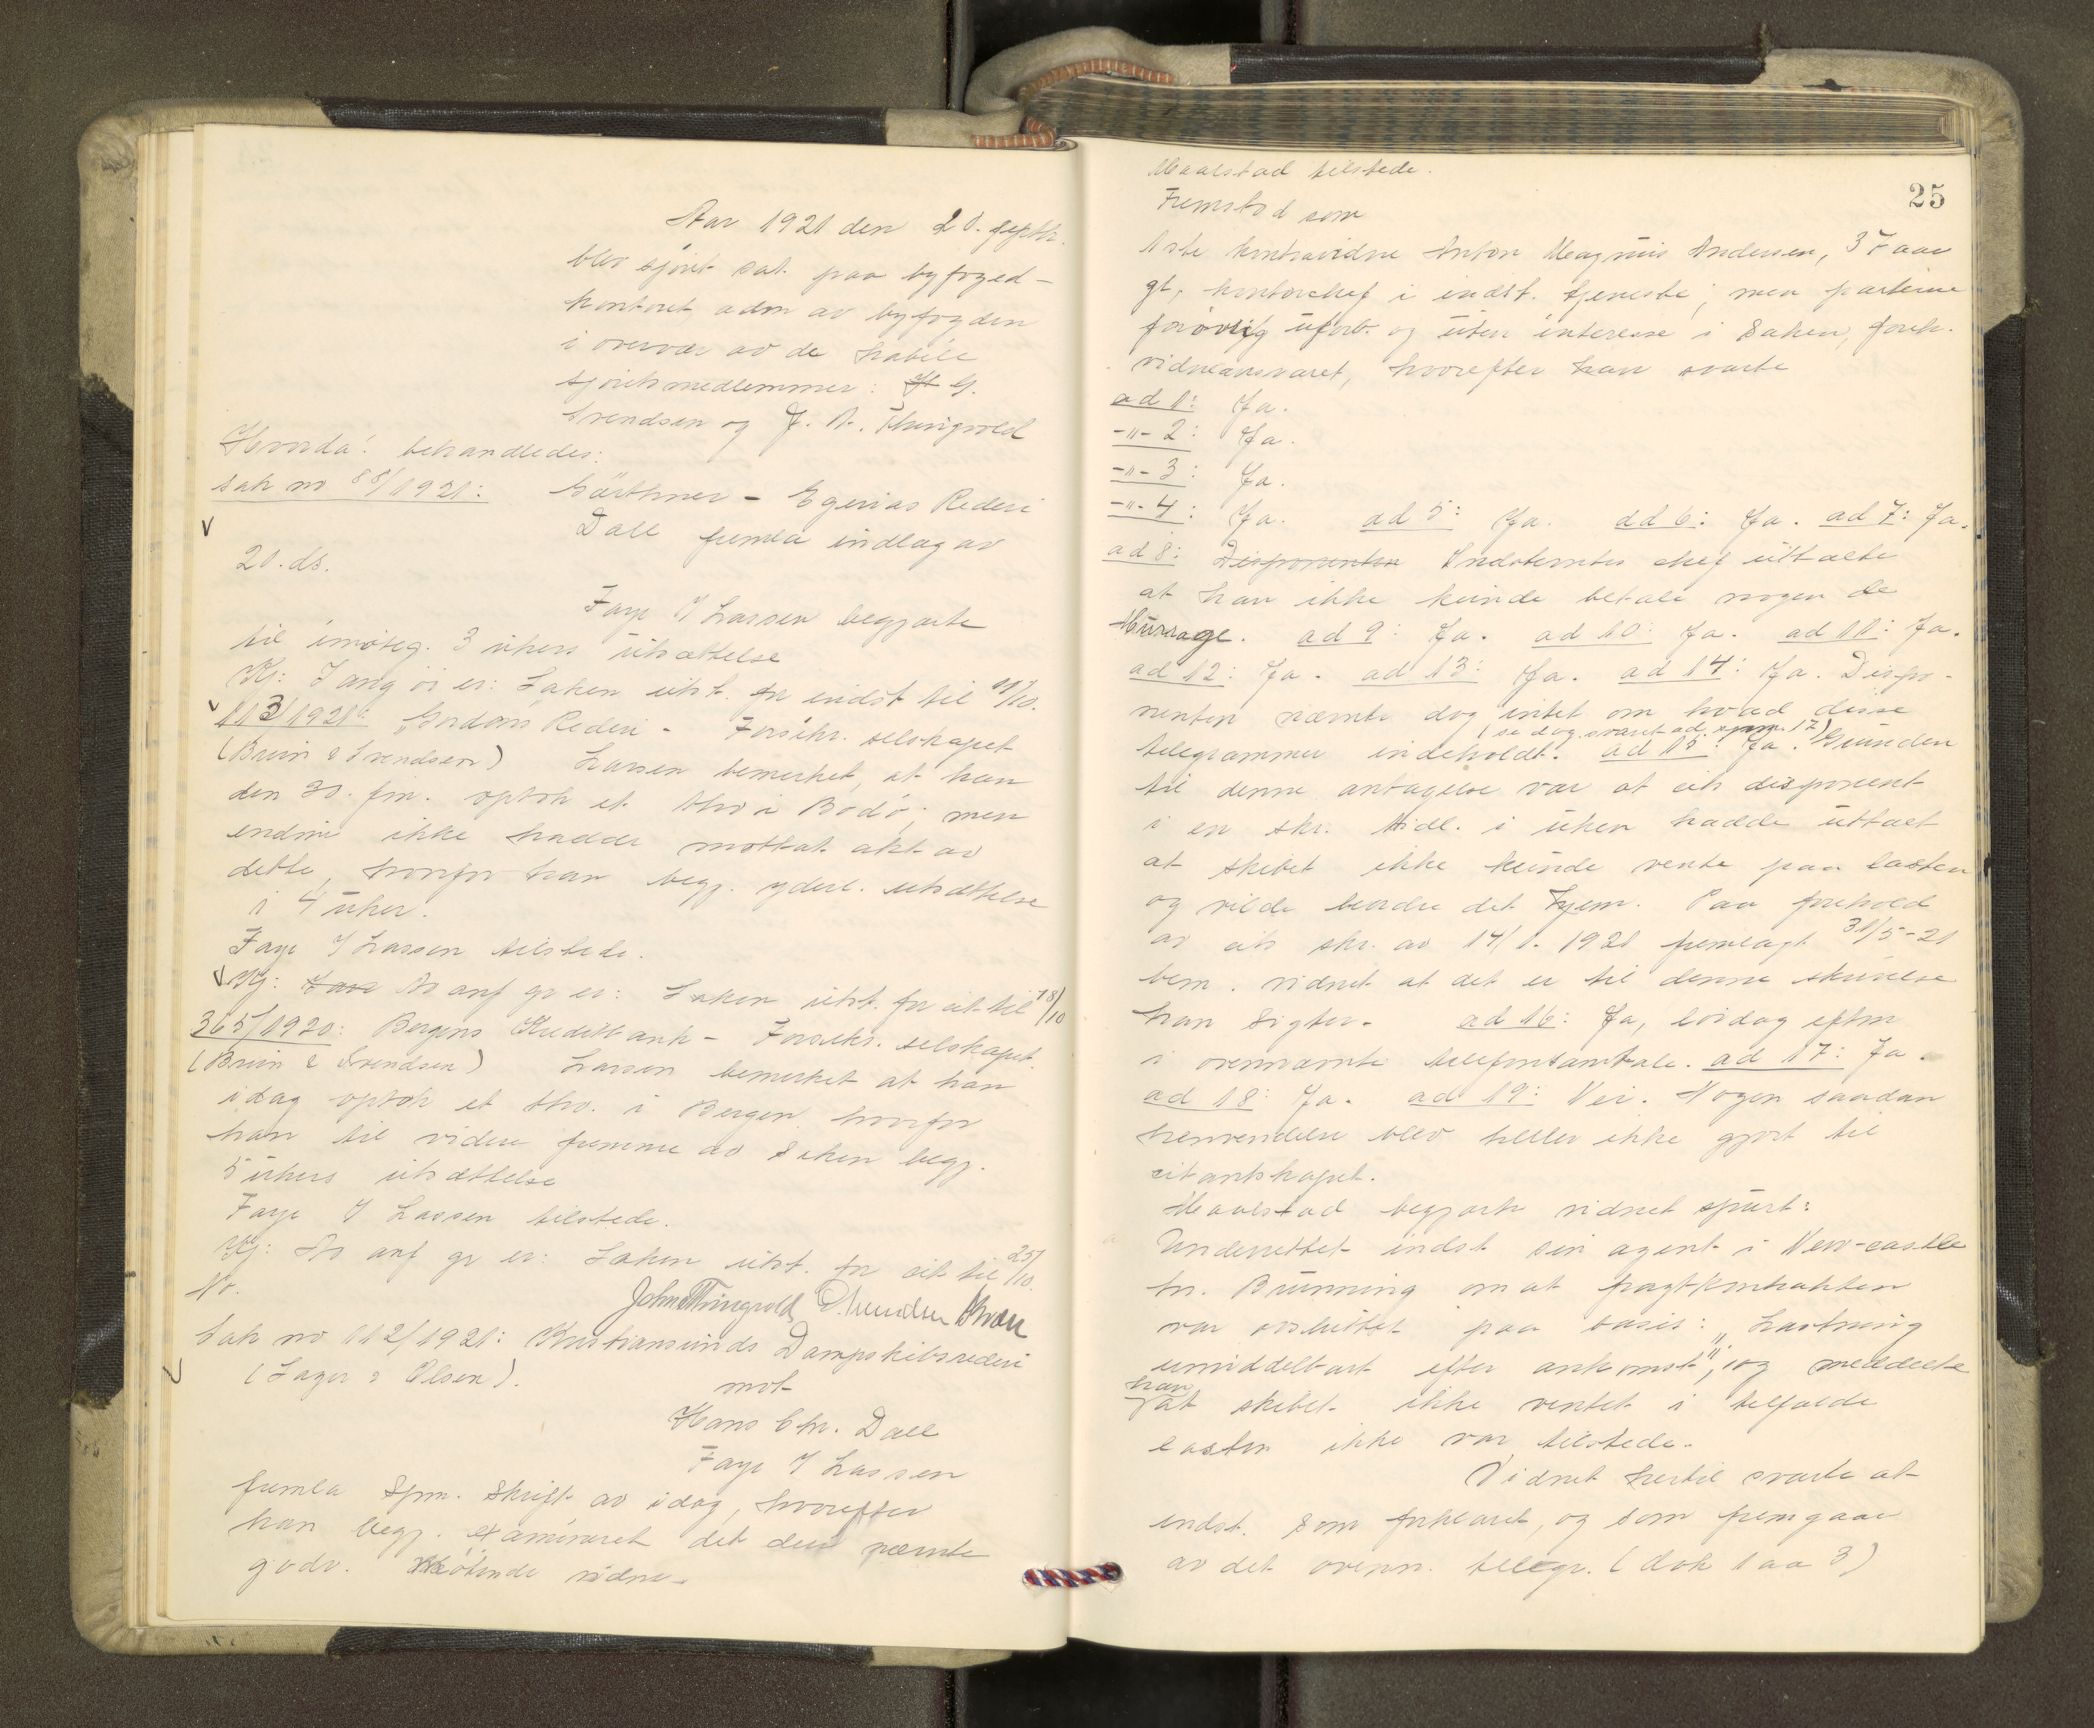 Aar 1921 den 20. septbr.
blev sjøret sat paa byfoged-
kontoret adm av byfogden
i overvær av de habile
sjøretsmedlemmer: G.
Svendsen og J. A. Thringvold
Hvorda: behandledes:
sak no 88/1921: Gärthner - Egerias Rederi
Dall fremla indlæg av
20. ds.
Faye f Lassen begjærte
til imøteg. 3 ukers utsættelse
Kj: I ang øi er: Saken utst. for indst til 11/10.
113/1921: "Gordons" Rederi - Forsikr. selskapet
(Bruin & Svendsen) Larsen bemerket, at han
den 30. f.m. optok et thv i Bodø, men
endnu ikke hadde mottat akt av
dette, hvorfor han begj. yderl. utsættelse
i 4 uker.
Faye f Lassen tilstede.
Kj: Av anf gr er: Saken utst. for cit til 18/10
365/1920: Bergens Kreditbank - Forsikr. selskapet.
(Bruin & Svendsen) Larsen bemerket at han
idag optok et thv. i Bergen hvorfor
han til videre fremme av saken begj.
5 ukers utsættelse
Faye f Lassen tilstede.
Kj: Av anf gr er: Saken utst. for cit til 25/10.
No.
John Thringvold G. Svendsen
Sak no 112/1921: Kristiansunds Dampskibsrederi
(Lager & Olsen).
mot
Hans Chr. Dall
Faye f Lassen
fremla spm. skrift av idag, hvorefter
han begj. examineret det deri nævnte
godv. møtende vidne.
25
Maalstad tilstede.
Fremstod som
1ste kontravidne Anton Magnus Andersen, 37 aar
gl, kontorchef i indst. tjeneste, men parterne
forøvrig uforb. og uten interesse i saken, foreh.
vidneansvaret, hvorefter han svarte
ad 1: Ja.
-"- 2: Ja.
-"- 3: Ja.
-"- 4: Ja. ad 5: Ja. ad 6: Ja. ad 7: Ja.
ad 8: Disponenten Indstevntes chef uttalte
at han ikke kunde betale nogen de
Murrage. ad 9: Ja. ad 10: Ja. ad 11: Ja.
ad 12: Ja. ad 13: Ja. ad 14: Ja. Dispo-
nenten nævnte dog intet om hvad disse
(se dog svaret ad spm. 17)
telegrammer indeholdt. ad 15: Ja. Grunden
til denne antagelse var at cits disponent
i en skr. tidl. i uken hadde uttalt
at skibet ikke kunde vente paa lasten
og vilde beordre det hjem. Paa forehold
av cits skr. av 14/1. 1921 fremlagt 31/5-21
bem. vidnet at det er til denne skrivelse
han sigter. ad 16: Ja, lørdag efter
i ovennævnte telefonsamtale. ad 17: Ja.
ad 18: Ja. ad 19: Nei. Nogen saadan
henvendelse blev heller ikke gjort til
citantskapet.
Maalstad begjærte vidnet spurt:
Underrettet indst sin agent i New-castle
hr. Brünning om at fragtkontrakten
var avsluttet paa basis: "Lastning
umiddelbart efter ankomst", og meddelte
han
at skibet ikke ventet i tilfælde
lasten ikke var tilstede.
Vidnet hertil svarte at
indst. som forklaret, og som fremgaar
av det ovenn. telegr. (dok 1 aa 3)